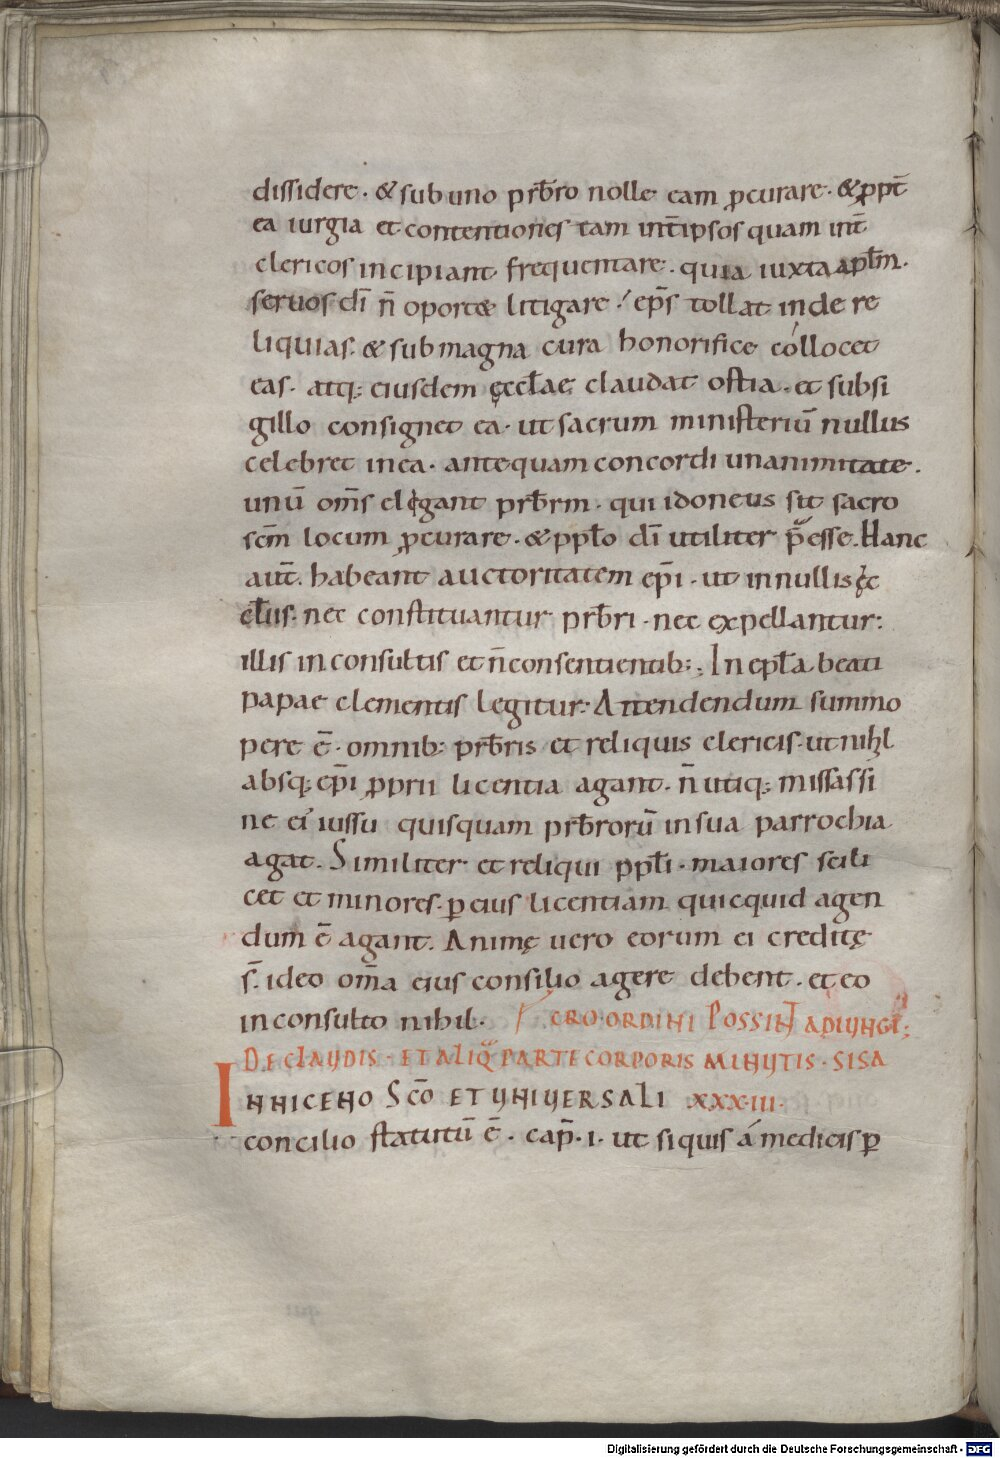 dissidere · & sub uno pr̅bro nolle eam p̱curare · & ꝓpt̅
ea iurgia et contentiones tam int̅ ipsos quam int̅
clericos incipiant frequentare · quia iuxta apl̅m ·
seruos di̅ n̅ oportet litigare / ep̅s tollat inde re
liquias · & sub magna cura honorifice collocet
eas · atq; eiusdem ęccl̅ae claudat ostia · et subsi
gillo consignet ea · ut sacrum ministeriu̅ nullus
celebret in ea · antequam concordi unanimitate ·
unu̅ om̅s elegant pr̅brm · qui idoneus sit sacro
sc̅m locum ꝓcurare · & ppl̅o di̅ utiliter p̅esse · Hanc
aut̅ · habeant auctoritatem ep̅i · ut in nullis ęc
cl̅iis · nec constituantur pr̅bri · nec expellantur :
illis inconsultis et n̅ consentientib; · In epl̅a beati
papae clementis legitur · Attendendum summo
pere e̅ · omnib; pr̅bris et reliquis clericis · ut nihl
absq; ep̅i ꝓprii licentia agant · n̅ utiq; missas si
ne ei' iussu quisquam pr̅broru̅ in sua parrochia
agat · Similiter et reliqui ppl̅i · maiores scili
cet et minores · ꝑ eius licentiam quicquid agen
dum e̅ agant · Animę uero eorum ei creditę
s̅ · ideo om̅a eius consilio agere debent · et eo
inconsulto nihil · CRO ORDINI POSSINT ADIUNGI;
DE CLAUDIS · ET ALIQ̅ PARTE CORPORIS MINUTIS · SI SA
INNICENO SC̅O ET UNIUERSALI XXXIII ·
concilio statutu̅ e̅ · cap̅ · i · ut si quis a medicis ꝑ
Digitalisierung gefördert durch die Deutsche Forschungsgemeinschaft - DFG